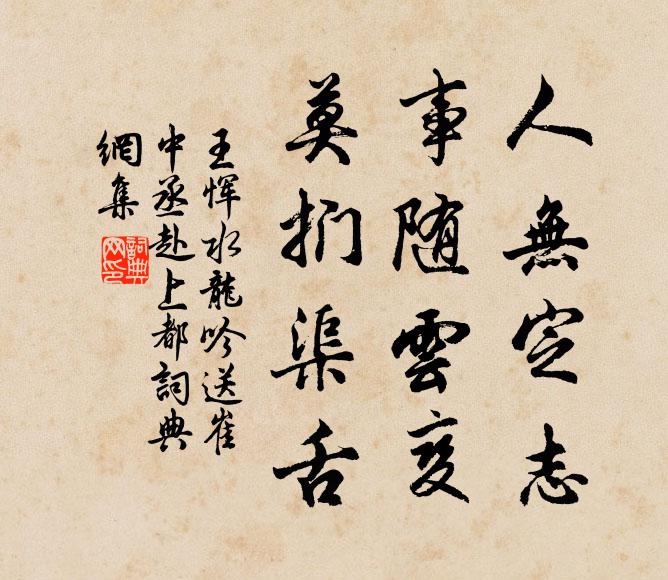 人無定志
事随雲变
莫捫渠舌
王恽水龍吟送崔
中丞赴上都詞典
網集
詞典
网印